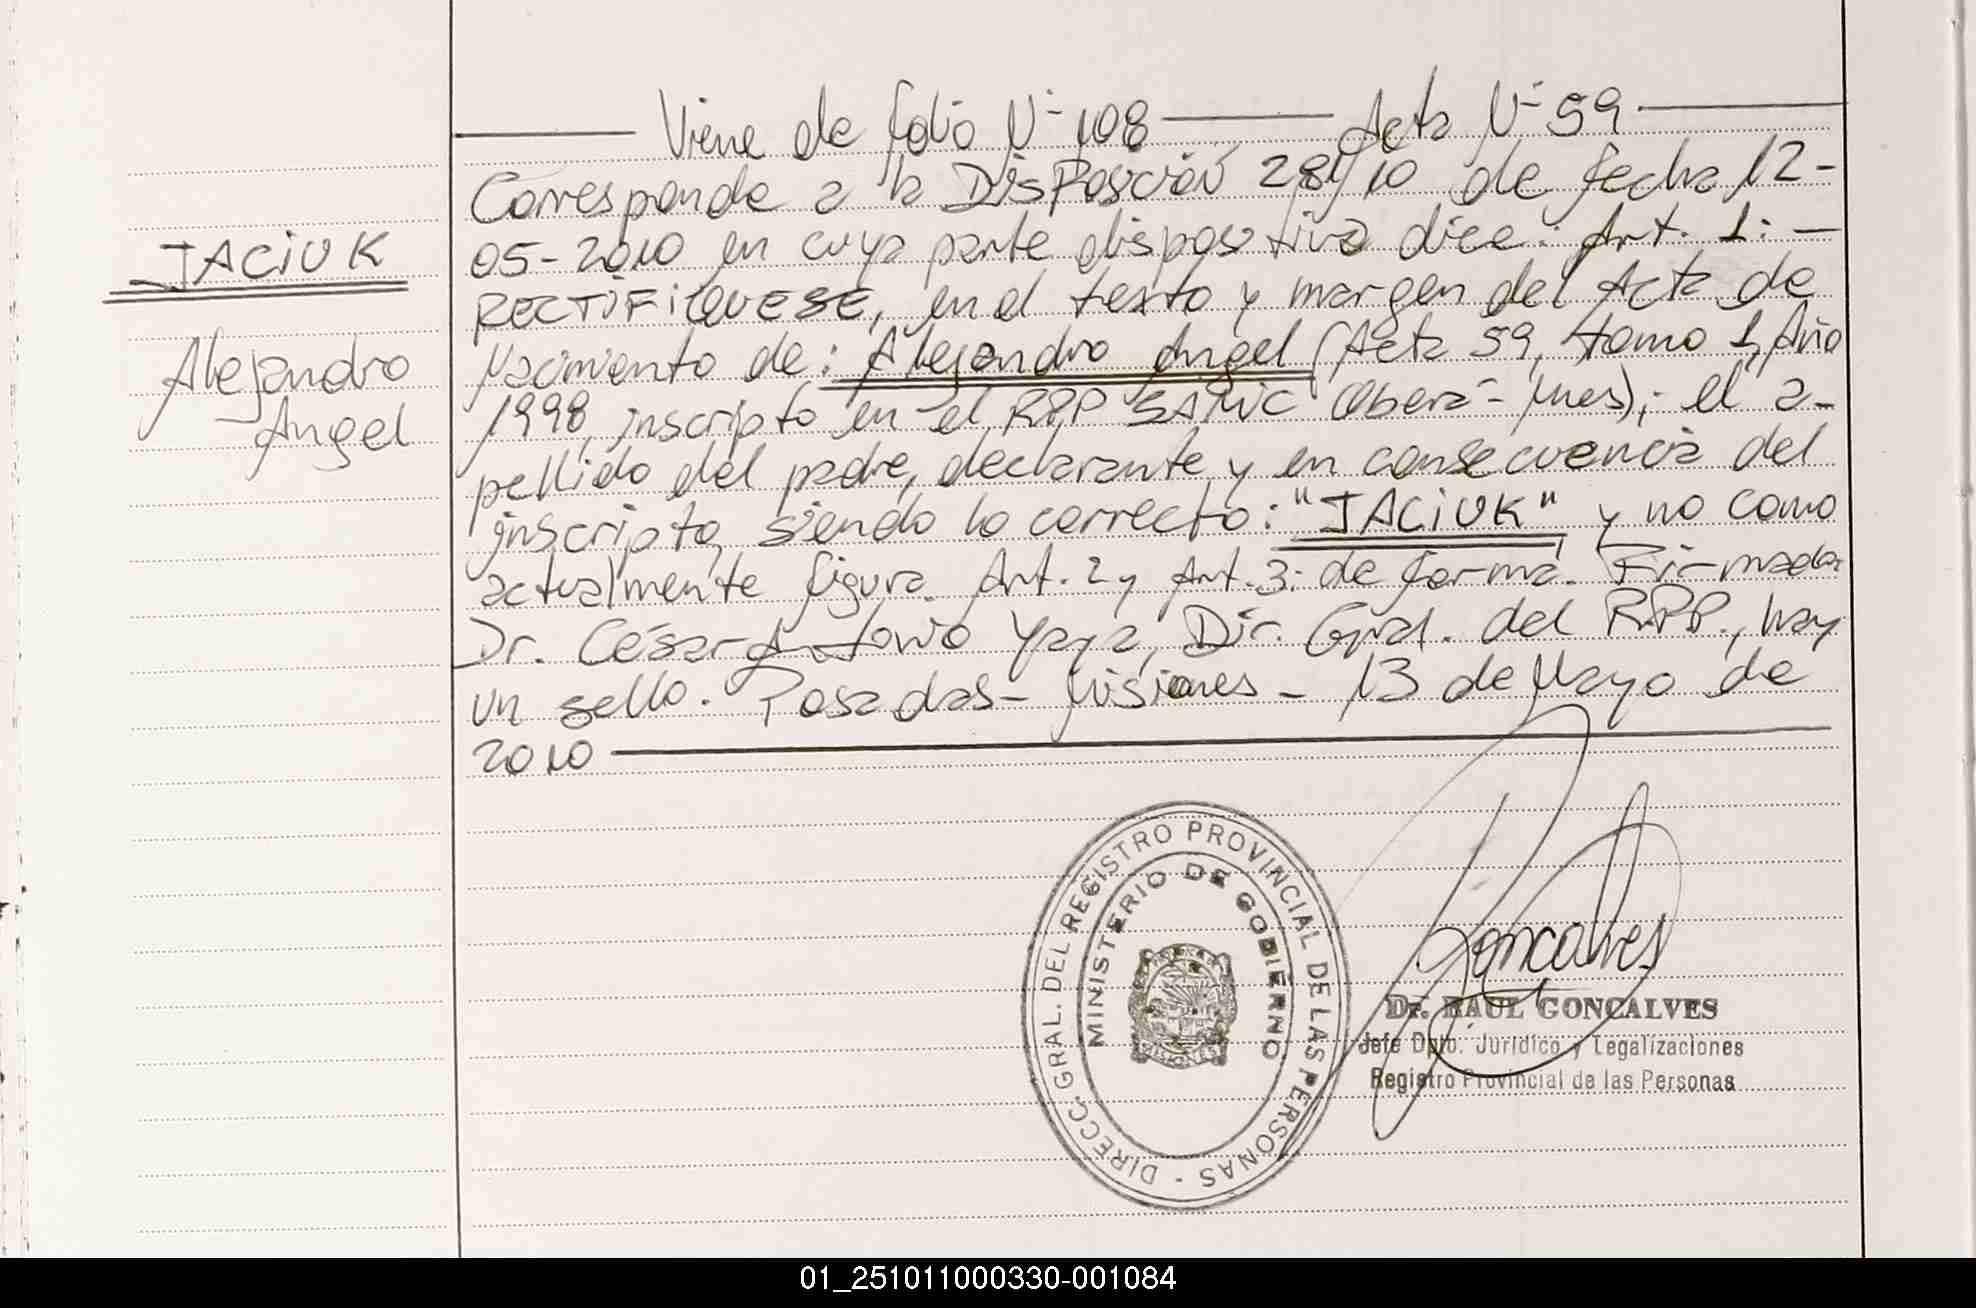 Viene de folio Nº 108 Acta Nº 59
Corresponde a la Disposición 281/10 de fecha 12-
05-2010 en cuya parte dispositiva dice: Art. 1: -
RECTIFIQUESE, en el texto y margen del Acta de
Nacimiento de: Alejandro Angel (Acta 59, tomo 1, Año
1998, inscripto en el RPP SAMIC Oberá - Mnes); el a-
pellido del padre, declarante y en consecuencia del
inscripto, siendo lo correcto: "JACiUK" y no como
actualmente figura. Art. 2 y Art. 3: de forma. Firmado:
Dr. César Antonio Yaya, Dir. Gral. del RPP., hay
un sello. Posadas - Misiones - 13 de Mayo de
2010
JACiUK
Alejandro
Angel
DIRECC. GRAL. DEL REGISTRO PROVINCIAL DE LAS PERSONAS -
MINISTERIO DE GOBIERNO
MISIONES
Goncalves
Dr. RAUL GONCALVES
Jefe Dpto. Jurídico y Legalizaciones
Registro Provincial de las Personas
01_251011000330-001084